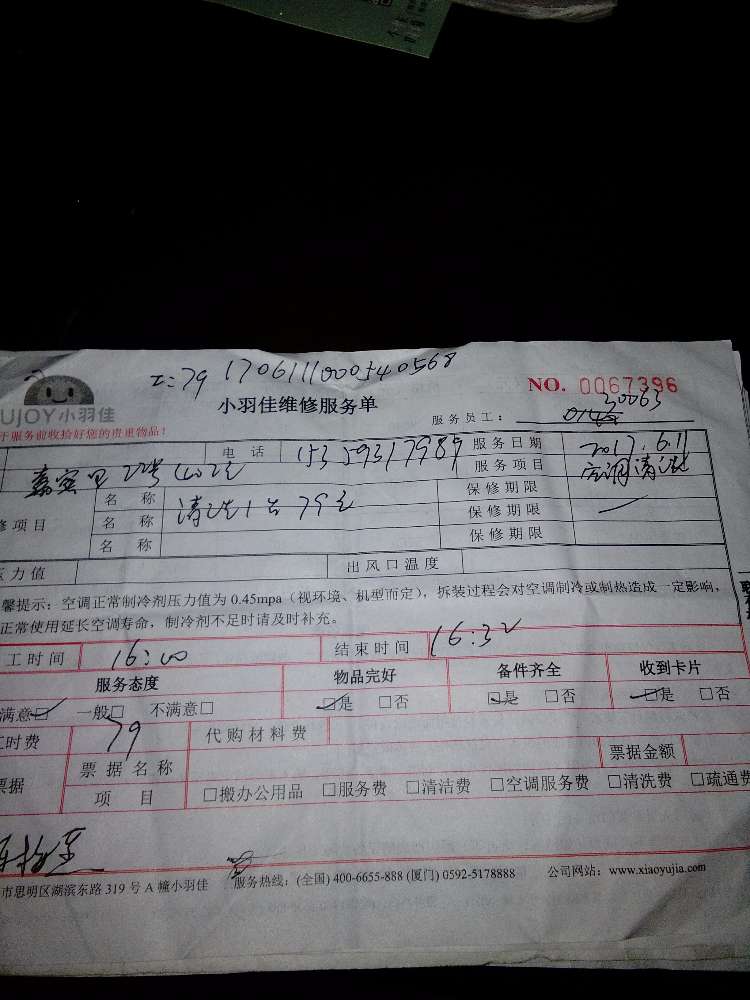 工:79 1706111000540568
NO. 0067396
UJOY小羽佳
小羽佳维修服务单
服务员工: 30063
于服务前收拾好您的贵重物品!
电 话 15359317989 服务日期 2017.6.11
嘉宾里22号402室 服务项目 空调清洗
修项目 名 称 清洗1台79元 保修期限
名 称 保修期限
名 称 保修期限
压力值 出风口温度
馨提示:空调正常制冷剂压力值为 0.45mpa(视环境、机型而定),拆装过程会对空调制冷或制热造成一定影响,
正常使用延长空调寿命,制冷剂不足时请及时补充。
工时间 16:00 结束时间 16:32
服务态度 物品完好 备件齐全 收到卡片
满意☑ 一般□ 不满意□ ☑是 □否 ☑是 □否 ☑是 □否
工时费 79 代购材料费
票据 票据名称 票据金额
项 目 □搬办公用品 □服务费 □清洁费 □空调服务费 □清洗费 □疏通费
市思明区湖滨东路 319 号 A 幢小羽佳 服务热线:(全国) 400-6655-888 (厦门) 0592-5178888 公司网站:www.xiaoyujia.com